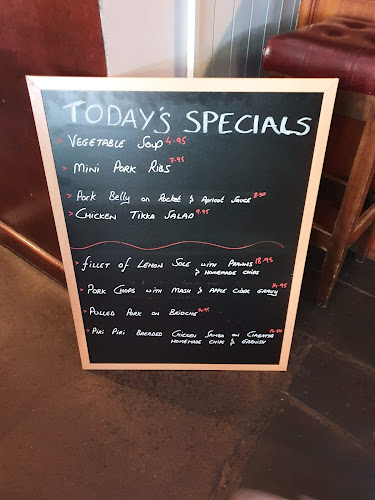 TODAY'S SPECIALS
> VEGETABLE SOUP 4.95
> MINI PORK RIBS 7.95
> PORK BELLY ON ROCKET & APRICOT SAUCE 8.50
> CHICKEN TIKKA SALAD 9.95
> FILLET OF LEMON SOLE WITH PRAWNS 18.95
& HOMEMADE CHIPS
> PORK CHOPS WITH MASH & APPLE CIDER GRAVY
> PULLED PORK ON BRIOCHE
> PIRI PIRI BREADED CHICKEN ON CIABATTA
HOMEMADE CHIPS & GARNISH